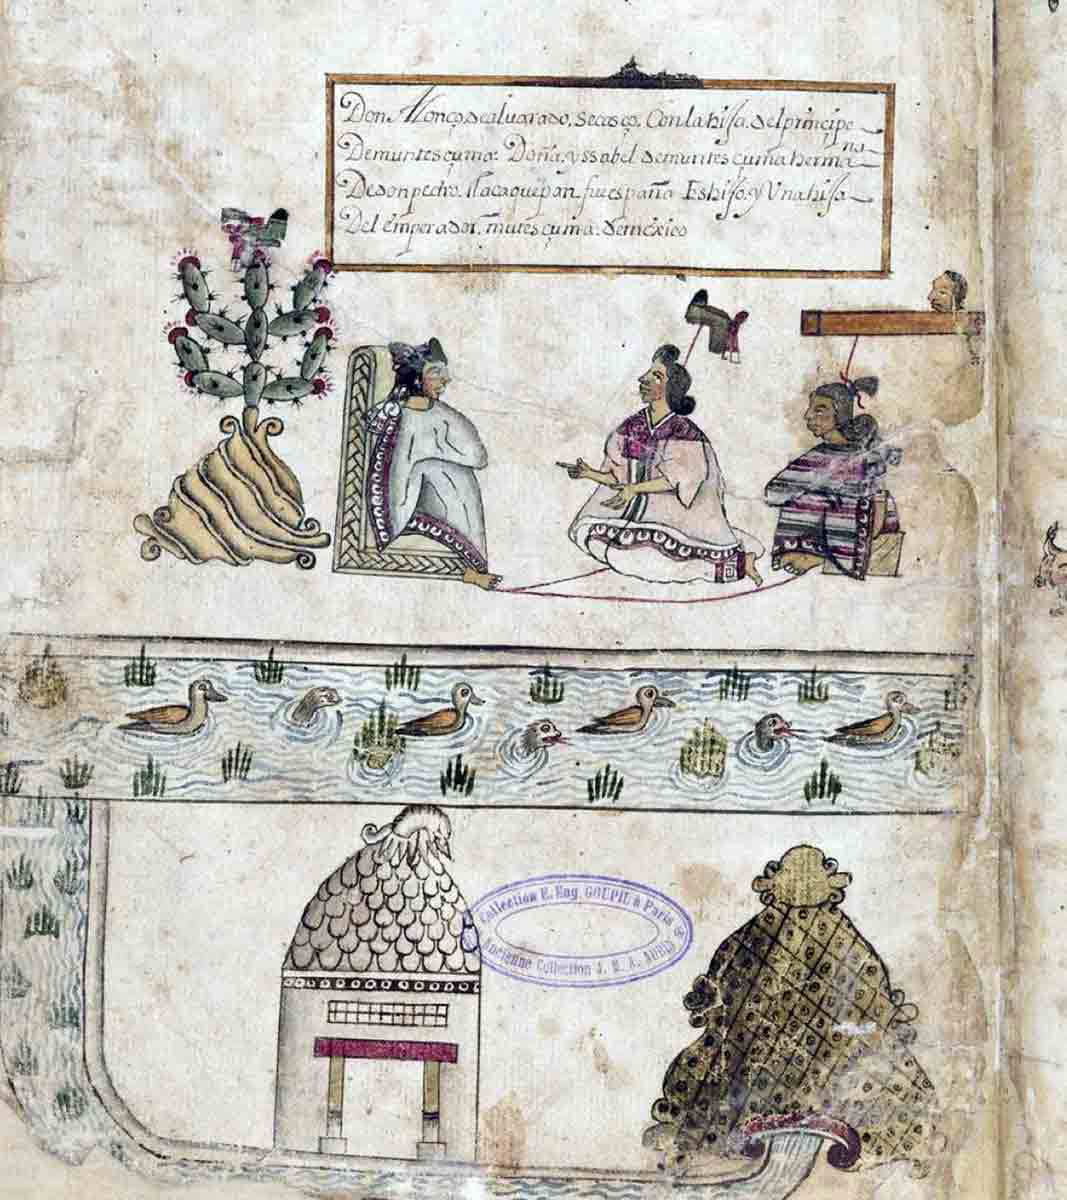 Don Alonço. de aluarado. de casco. Con la hisa. del principe
De muntesçuma. Doña. yssabel de muntesçuma herma-na
De don pedro. tlacaquepan fue españa Es hiso. y Una hisa
Del emperador. mutesçuma. de mexico
Collection E. Eug. GOUPIL à Paris
Ancienne Collection J. M. A. AUBIN